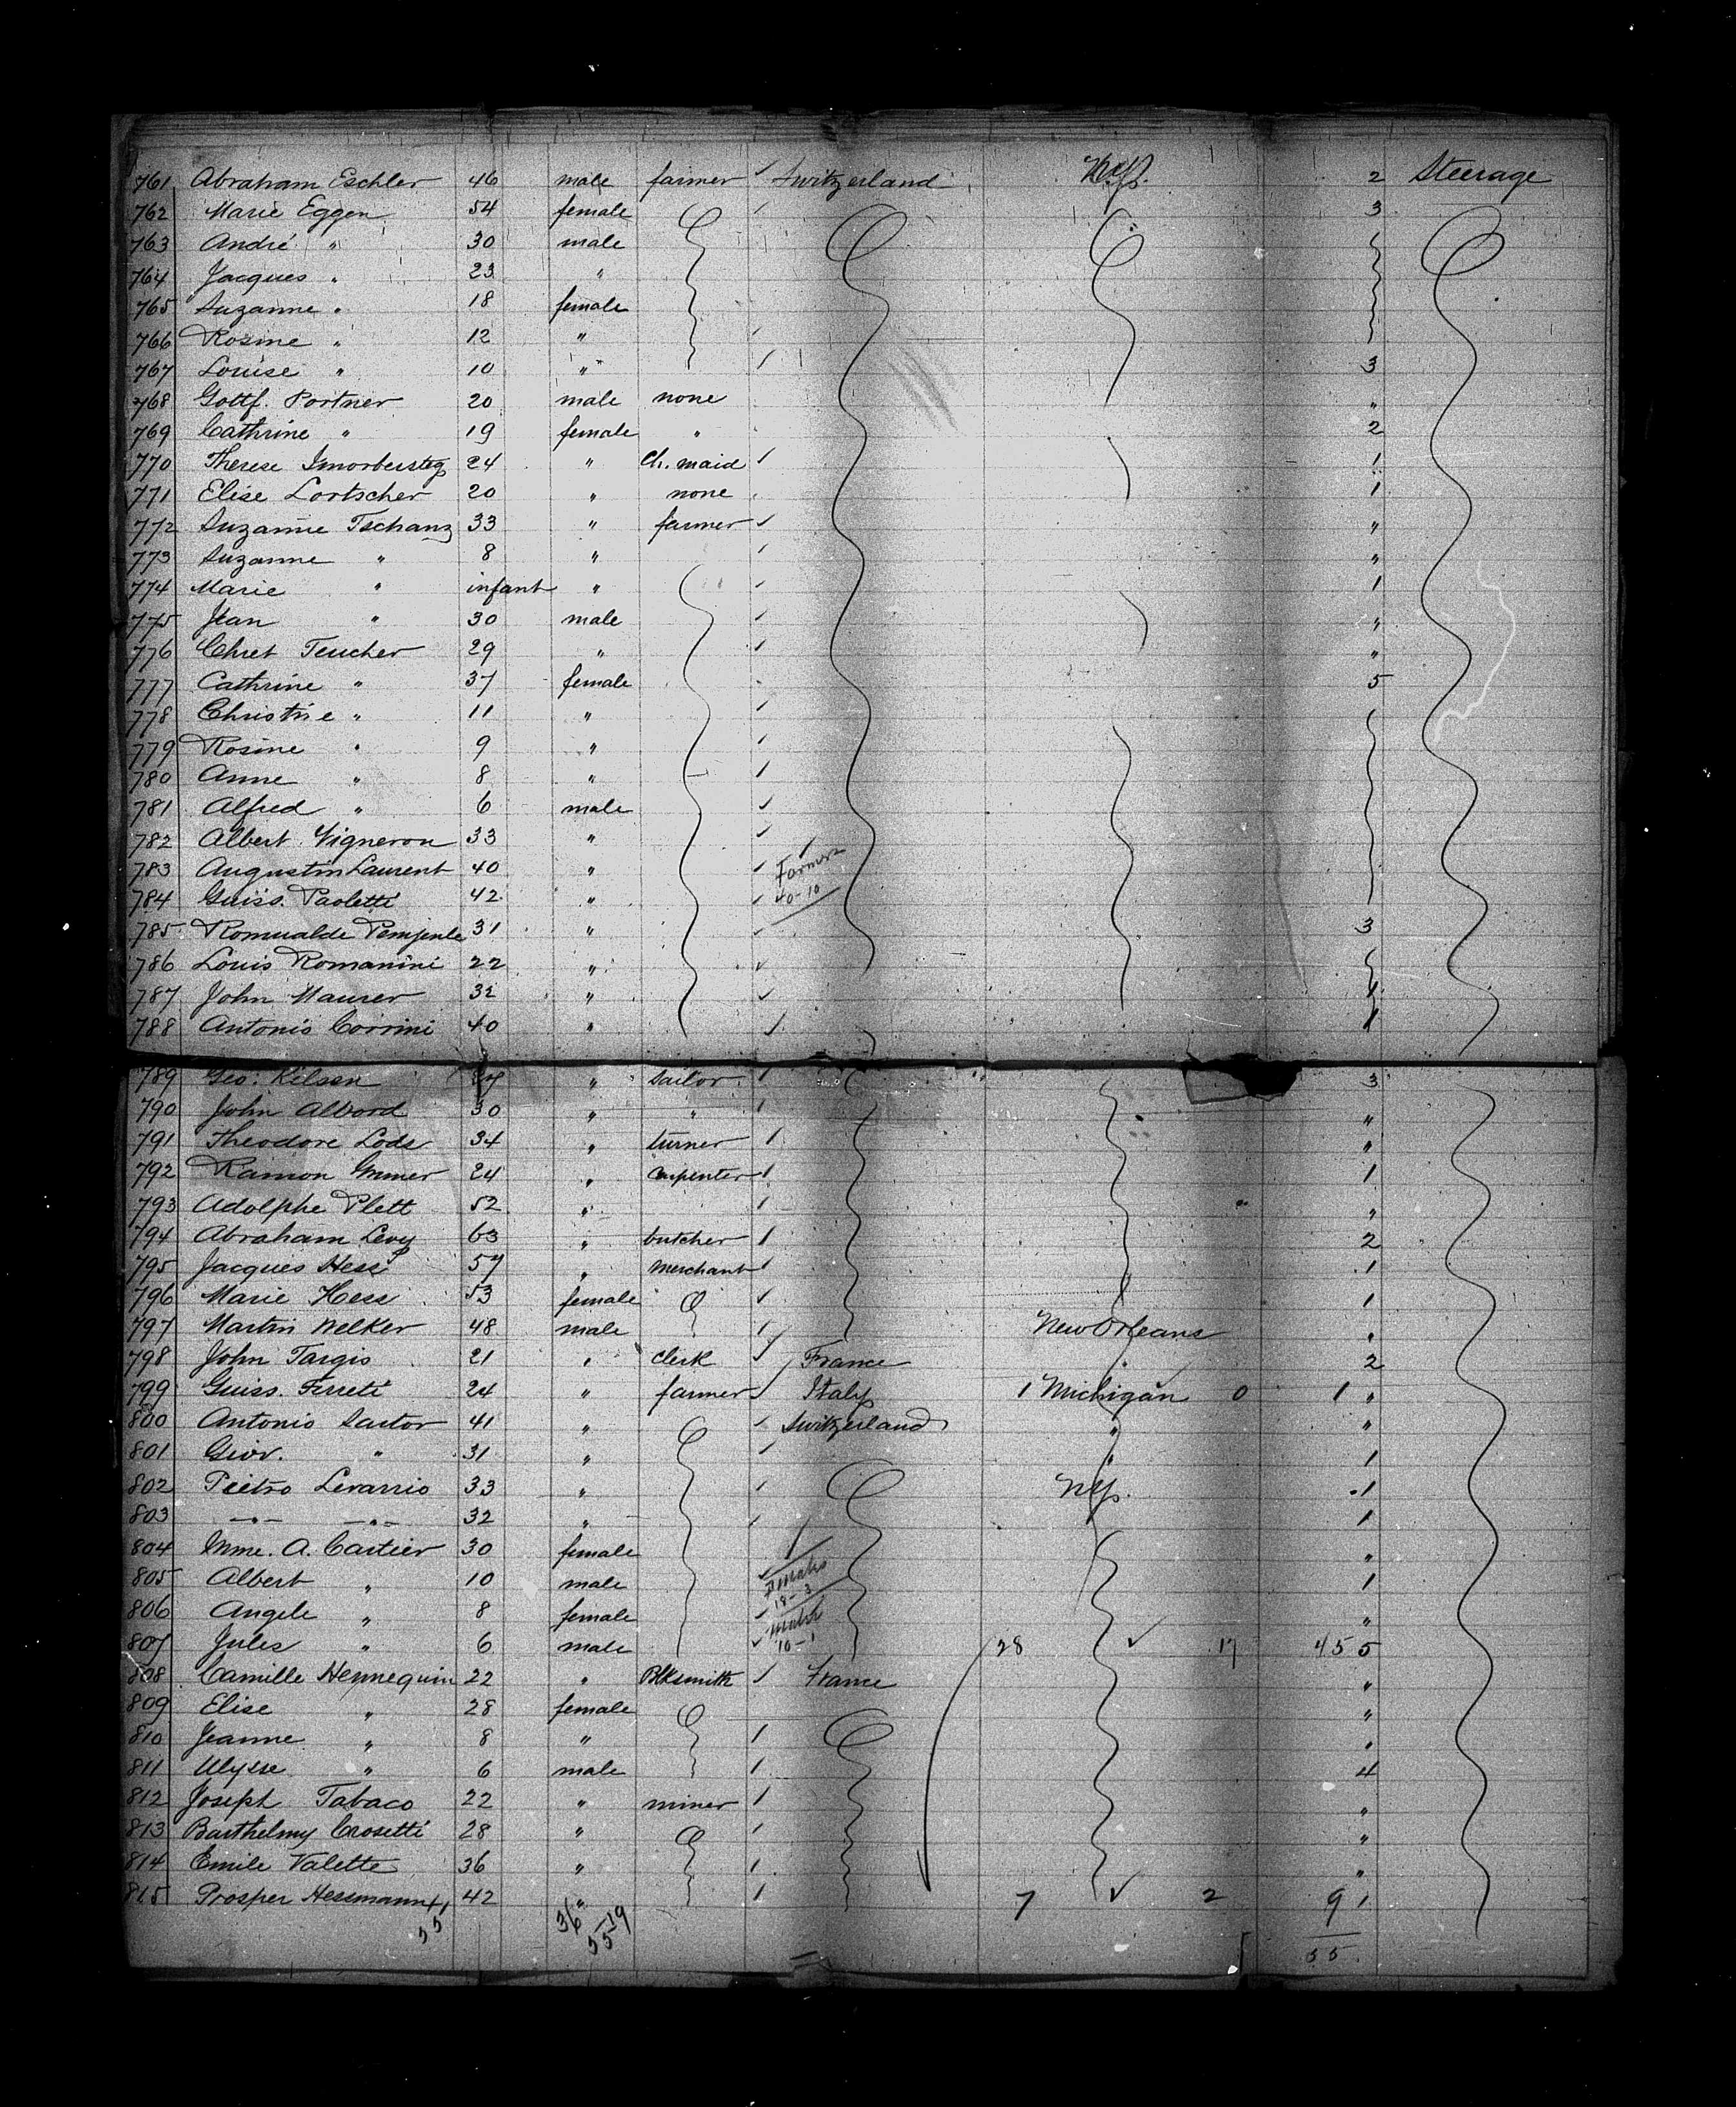 761 Abraham Eschler 46 male farmer ✓ Switzerland 2 Steerage
762 Marie Eggen 54 female 3
763 André " 30 male
764 Jacques " 23 "
765 Suzanne " 18 female
766 Rosine " 12 "
767 Louise " 10 " 3
768 Gottf. Portner 20 male none "
769 Cathrine " 19 female " 2
770 Therese Imobersteg 24 " Ch. maid 1
771 Elise Lortscher 20 " none 1
772 Suzanne Tschanz 33 " farmer ✓ "
773 Suzanne " 8 " "
774 Marie " infant " 1
775 Jean " 30 male "
776 Chret Teucher 29 " "
777 Cathrine " 37 female 5
778 Christine " 11 "
779 Rosine " 9 "
780 Anne " 8 "
781 Alfred " 6 male ✓
782 Albert Vigneron 33 " ✓
783 Augustin Laurent 40 "
784 Guiss. Paoletti 42 " 40-10
785 Romualde 31 " 3
786 Louis Romanini 22 " ✓
787 John Maurer 32 " ✓ 1
788 Antonio Corrini 40 " ✓ 1
789 Geo. Kelsen " sailor 3
790 John Albord 30 " " "
791 Theodore Lods 34 " turner "
792 Ramon 24 " carpenter 1
793 Adolphe Plett 52 " "
794 Abraham Levy 63 " butcher 2
795 Jacques Hess 57 " merchant 1
796 Marie Hess 53 female ✓ 1
797 Martin Welker 48 male New Orleans "
798 John Targis 21 " clerk ✓ France " 2
799 Guiss. Ferreti 24 " farmer Italy 1 Michigan 0 1 "
800 Antonio Sartor 41 " Switzerland " "
801 Giov. " 31 " " 1
802 Pietro Levarrio 33 " 1
803 -"- -"- 32 " 1
804 Mme. A. Cartier 30 female "
805 Albert " 10 male 1
806 Angele " 8 female "
807 Jules " 6 male ✓ 10-1 28 ✓ 17 45 5
808 Camille Hennequin 22 " Blksmith France "
809 Elise " 28 female "
810 Jeanne " 8 " "
811 Ulysse " 6 male 4
812 Joseph Tabaco 22 " miner "
813 Barthelmy Crosetti 28 " "
814 Emile Valette 36 " "
815 Prosper Hessmann 42 " 7 ✓ 2 9 1
55 36-19 55 55